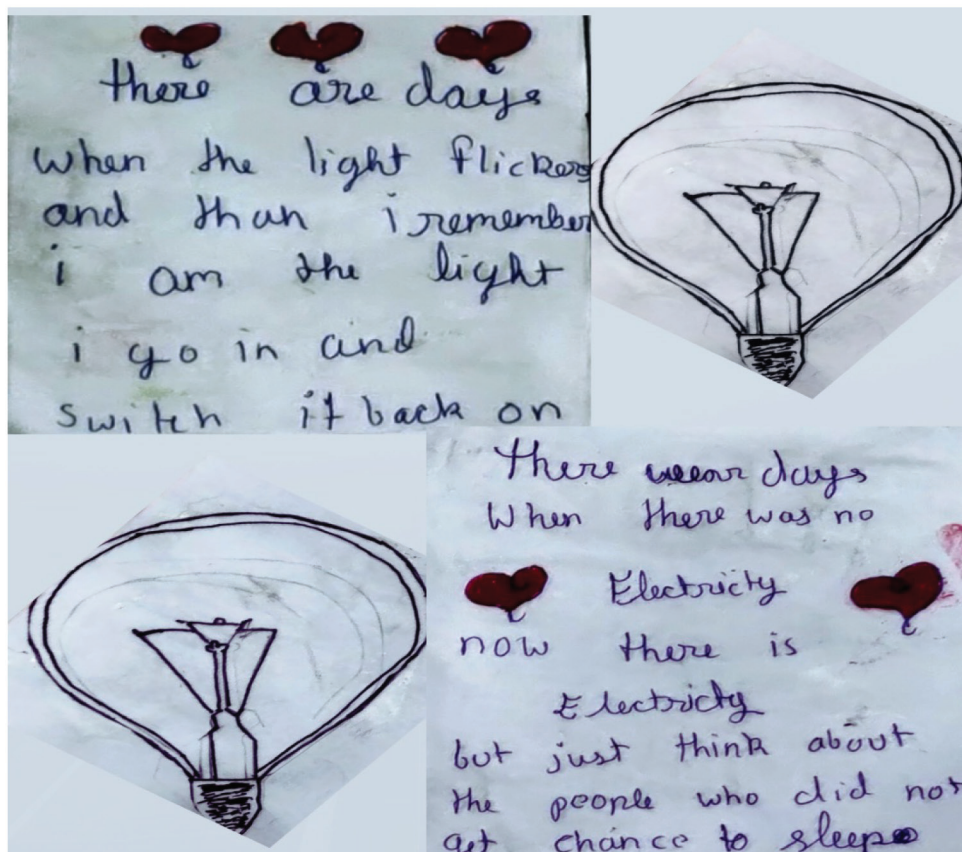 there are days
when the light flickers
and than i remember
i am the light
i go in and
switch it back on
There wear days
When there was no
Electricty
now there is
Electricty
but just think about
the people who did not
get chance to sleep